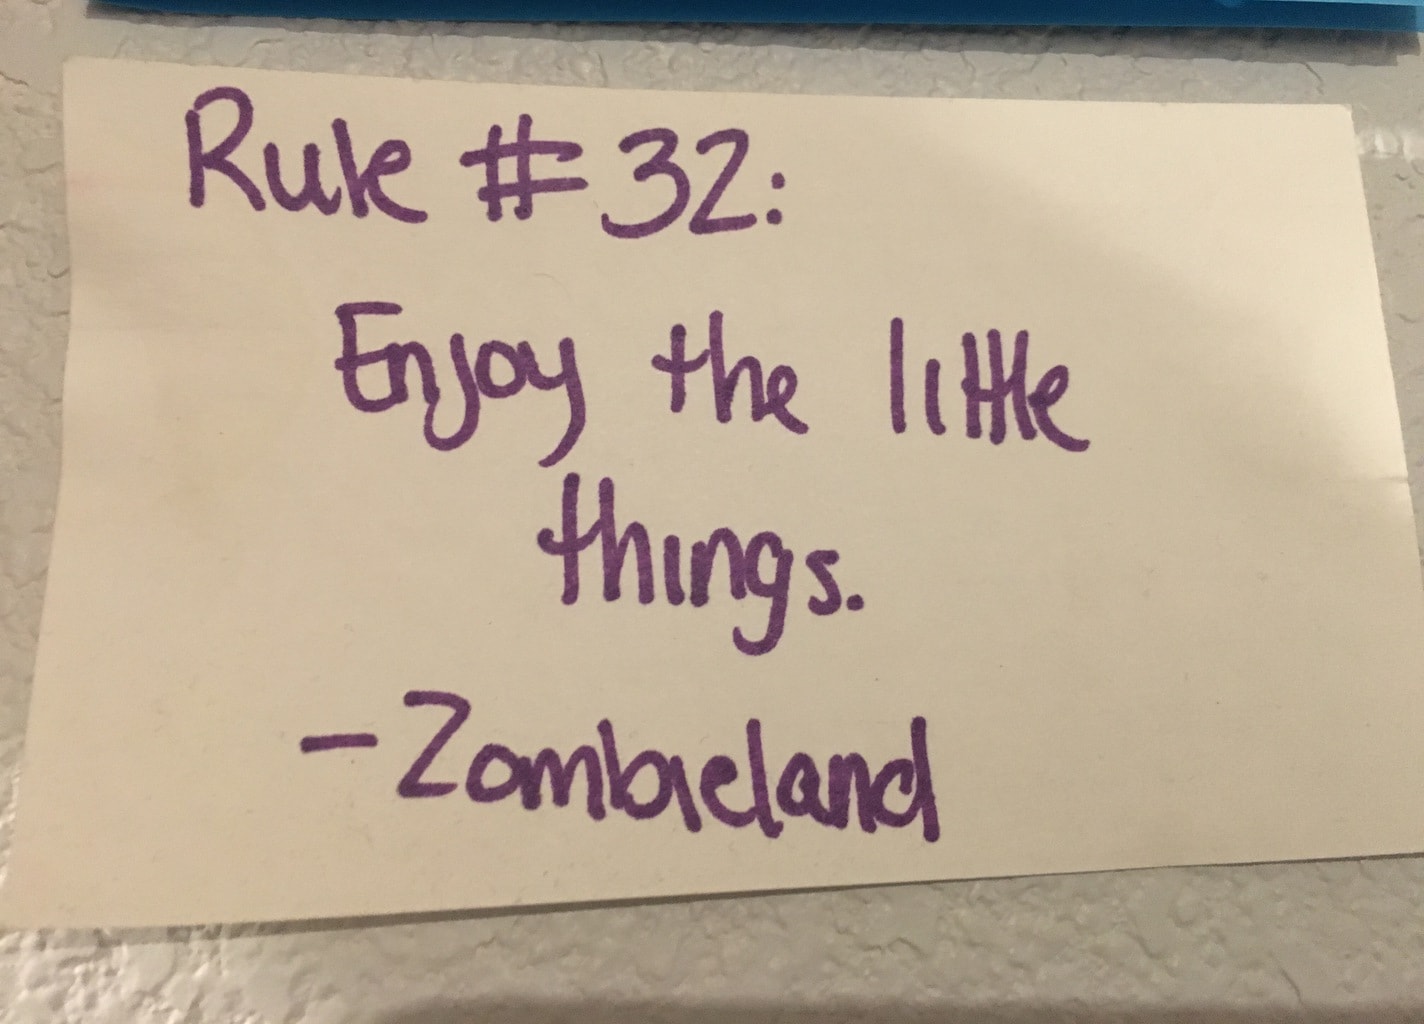 Rule #32:
Enjoy the little
things.
- Zombieland